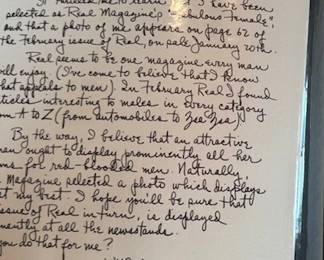 It thrilled me to learn that I have been
selected as Real Magazine's "Fabulous Female",
and that a photo of me appears on page 62 of
the February issue of Real, on sale January 20th.
Real seems to be one magazine every man
will enjoy. (I've come to believe that I know
what appeals to men). In February Real I found
articles interesting to males in every category
from A to Z (from automobiles to Zsa Zsa)
By the way, I believe that an attractive
ought to display prominently all her
for red-blooded men. Naturally,
Magazine selected a photo which displays
at my best. I hope you'll be sure that
issue of Real in turn, is displayed
at all the newsstands.
you do that for me?